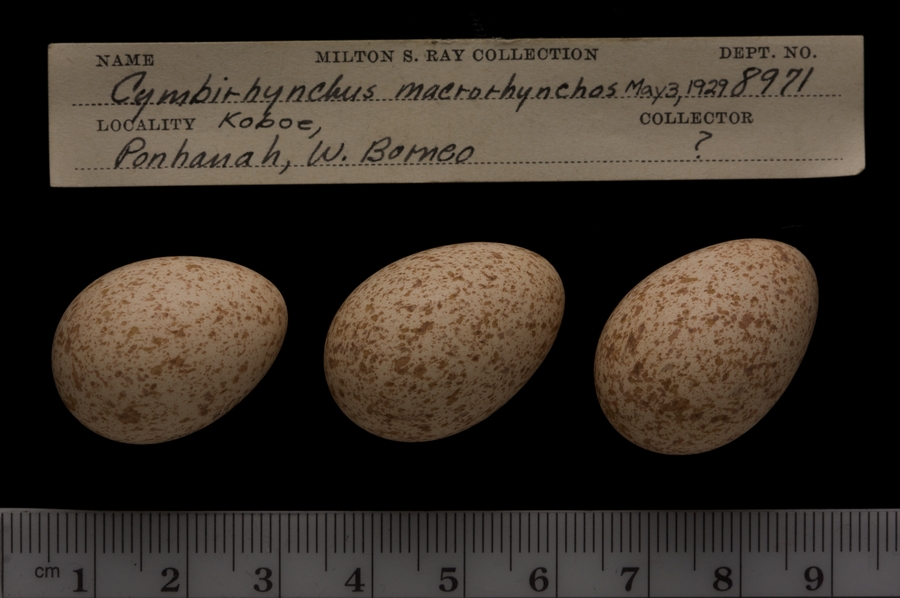 NAME MILTON S. RAY COLLECTION DEPT. NO.
Cymbirhynchus macrorhynchos May 3, 1929 8971
LOCALITY Koboe, COLLECTOR
Ponhanah, W. Borneo ?
cm 1 2 3 4 5 6 7 8 9